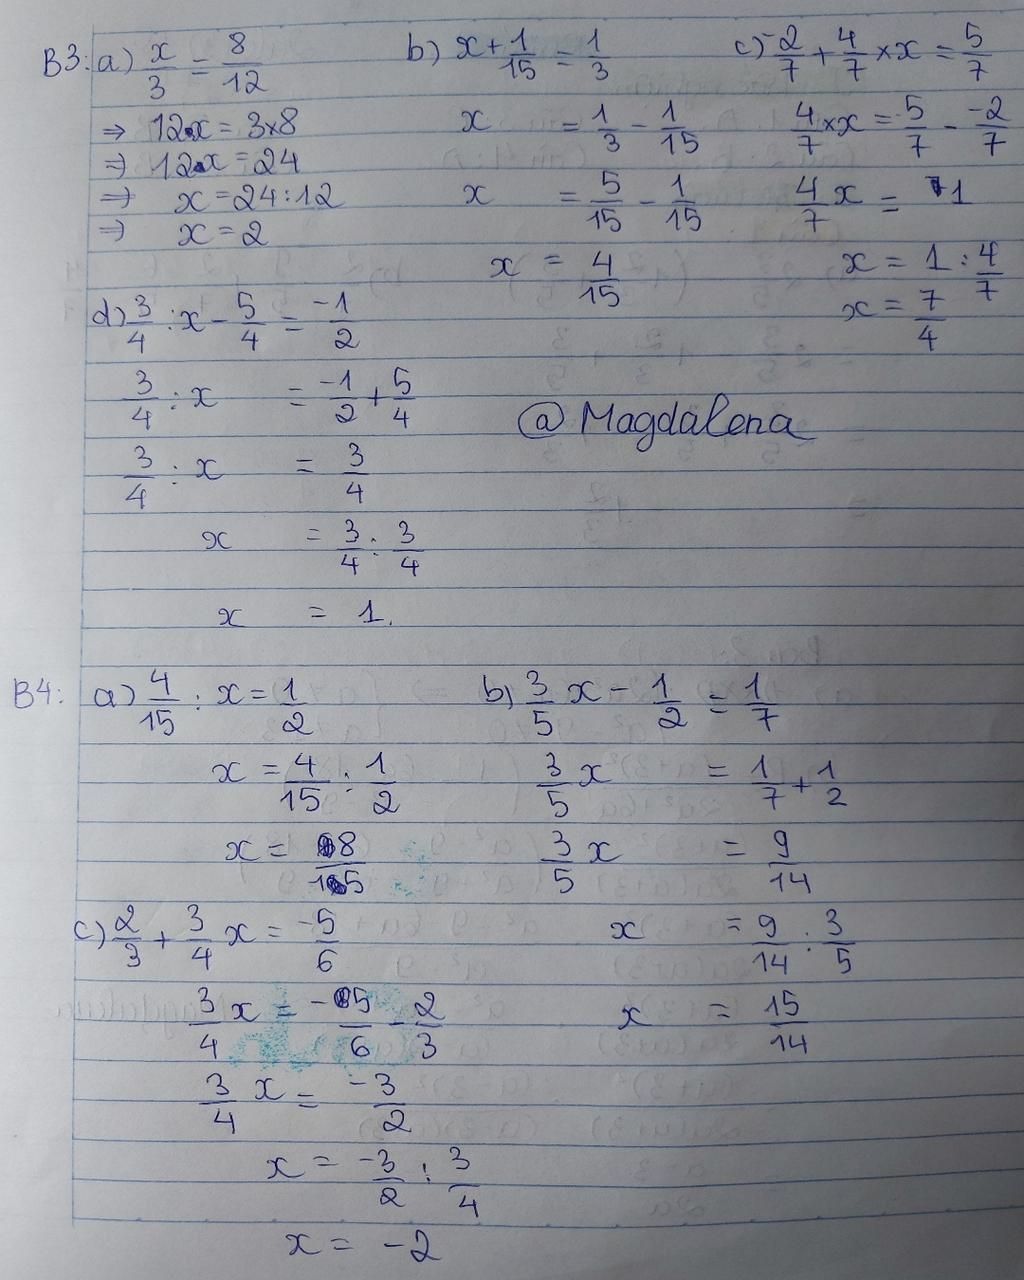 B3: a) x/3 = 8/12
⇒ 12.x = 3×8
⇒ 12.x = 24
⇒ x = 24:12
⇒ x = 2
b) x + 1/15 = 1/3
x = 1/3 - 1/15
x = 5/15 - 1/15
x = 4/15
c) -2/7 + 4/7 × x = 5/7
4/7 × x = 5/7 - -2/7
4/7 x = 1
x = 1 : 4/7
x = 7/4
d) 3/4 : x - 5/4 = -1/2
3/4 : x = -1/2 + 5/4
3/4 : x = 3/4
x = 3/4 : 3/4
x = 1.
@ Magdalena
B4: a) 4/15 : x = 1/2
x = 4/15 : 1/2
x = 8/15
b) 3/5 x - 1/2 = 1/7
3/5 x = 1/7 + 1/2
3/5 x = 9/14
x = 9/14 : 3/5
x = 15/14
c) 2/3 + 3/4 x = -5/6
3/4 x = -5/6 - 2/3
3/4 x = -3/2
x = -3/2 : 3/4
x = -2